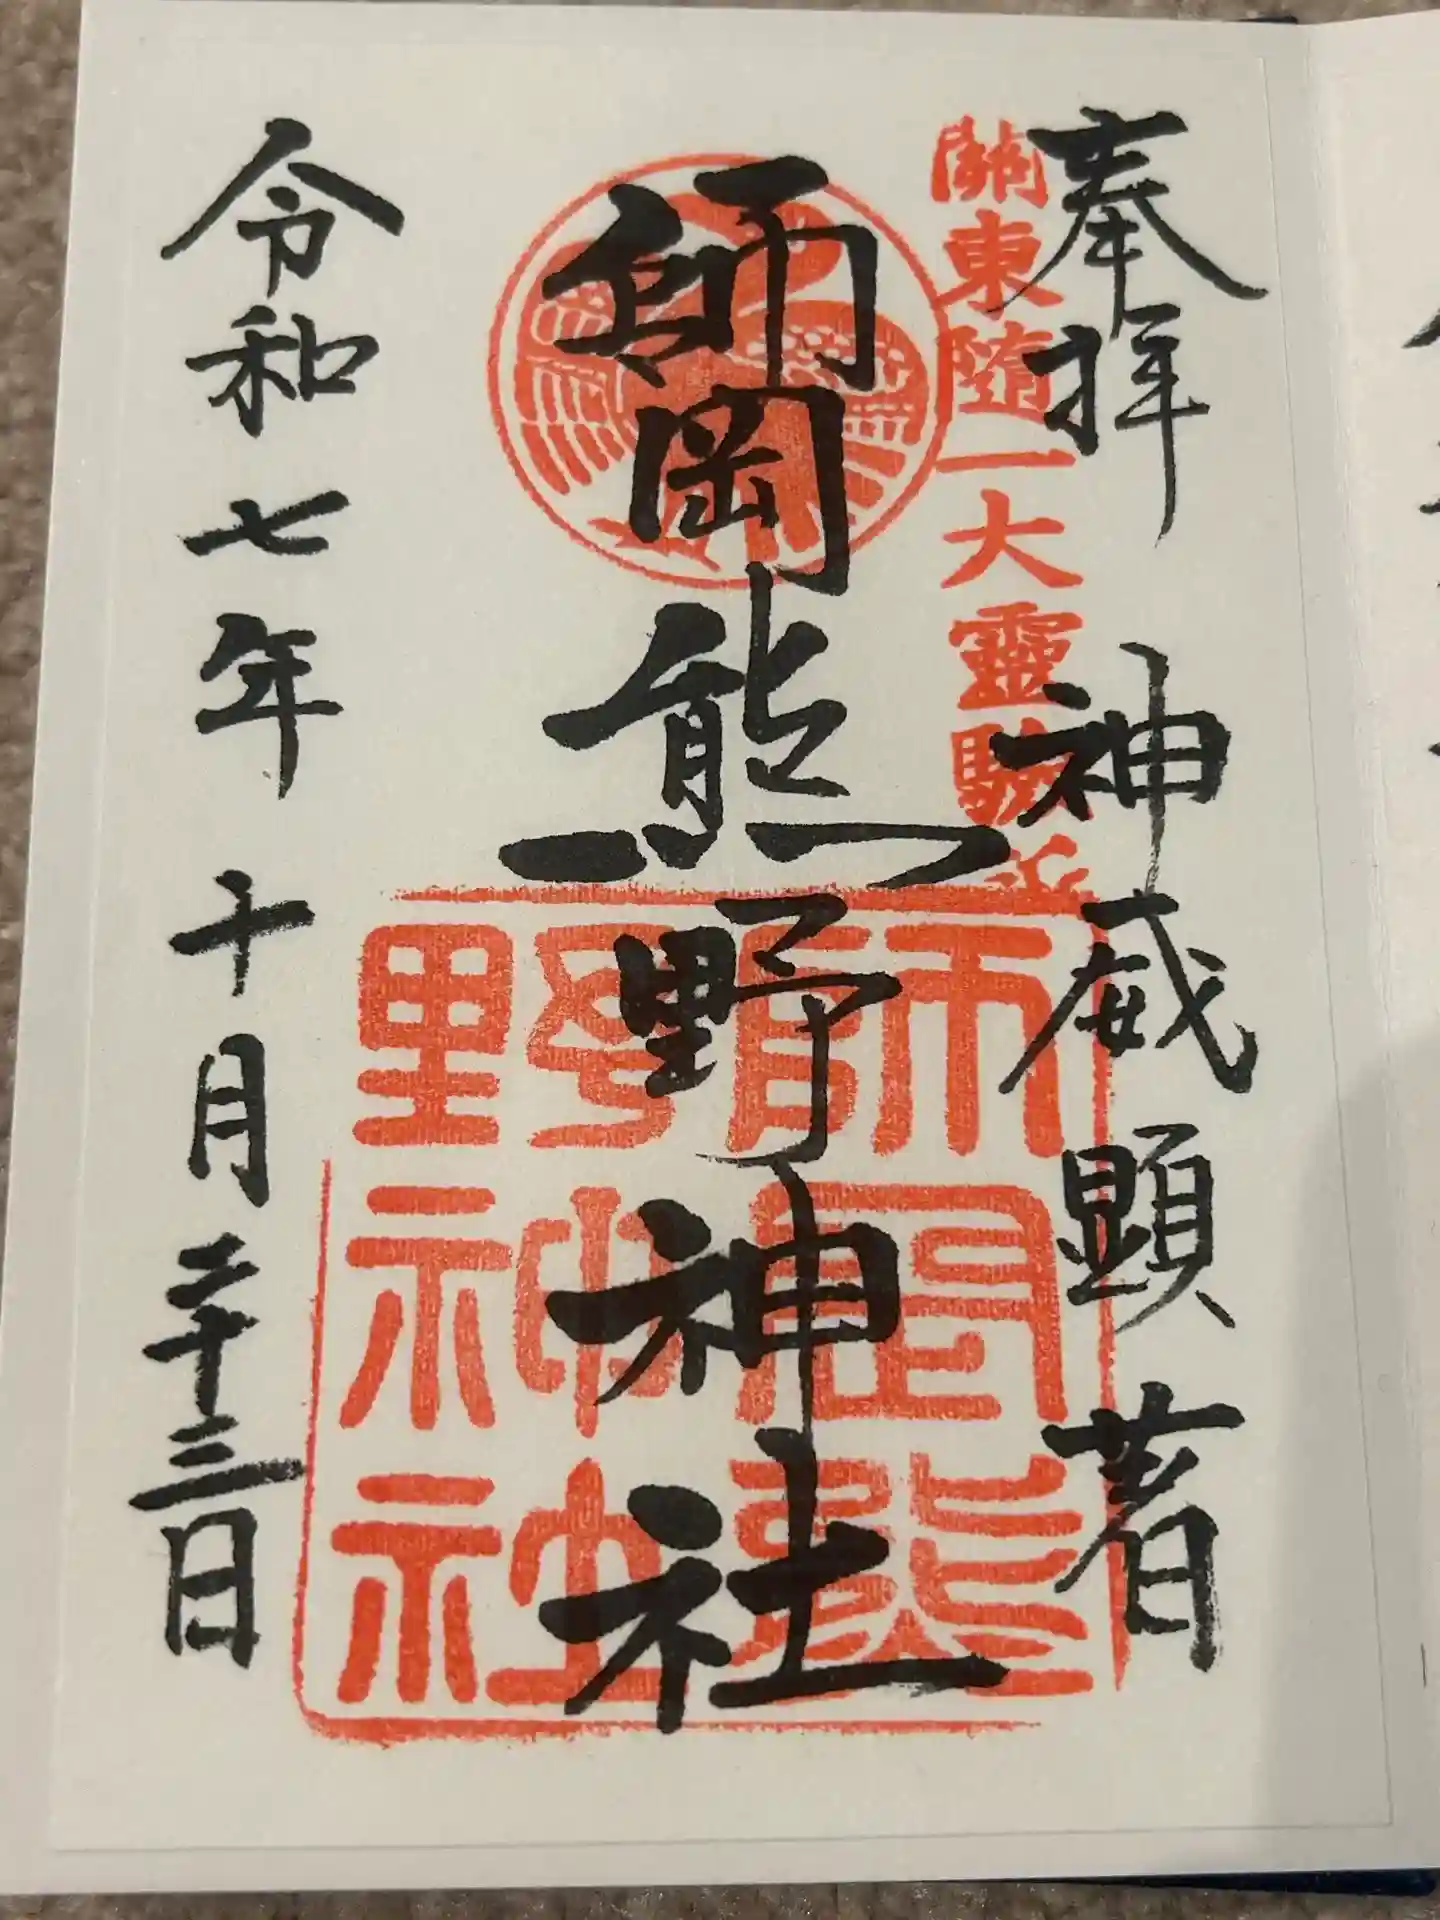 奉拝　神威顕著
關東随一大靈験所
師岡熊野神社
師岡熊
野神社
令和七年十月二十三日